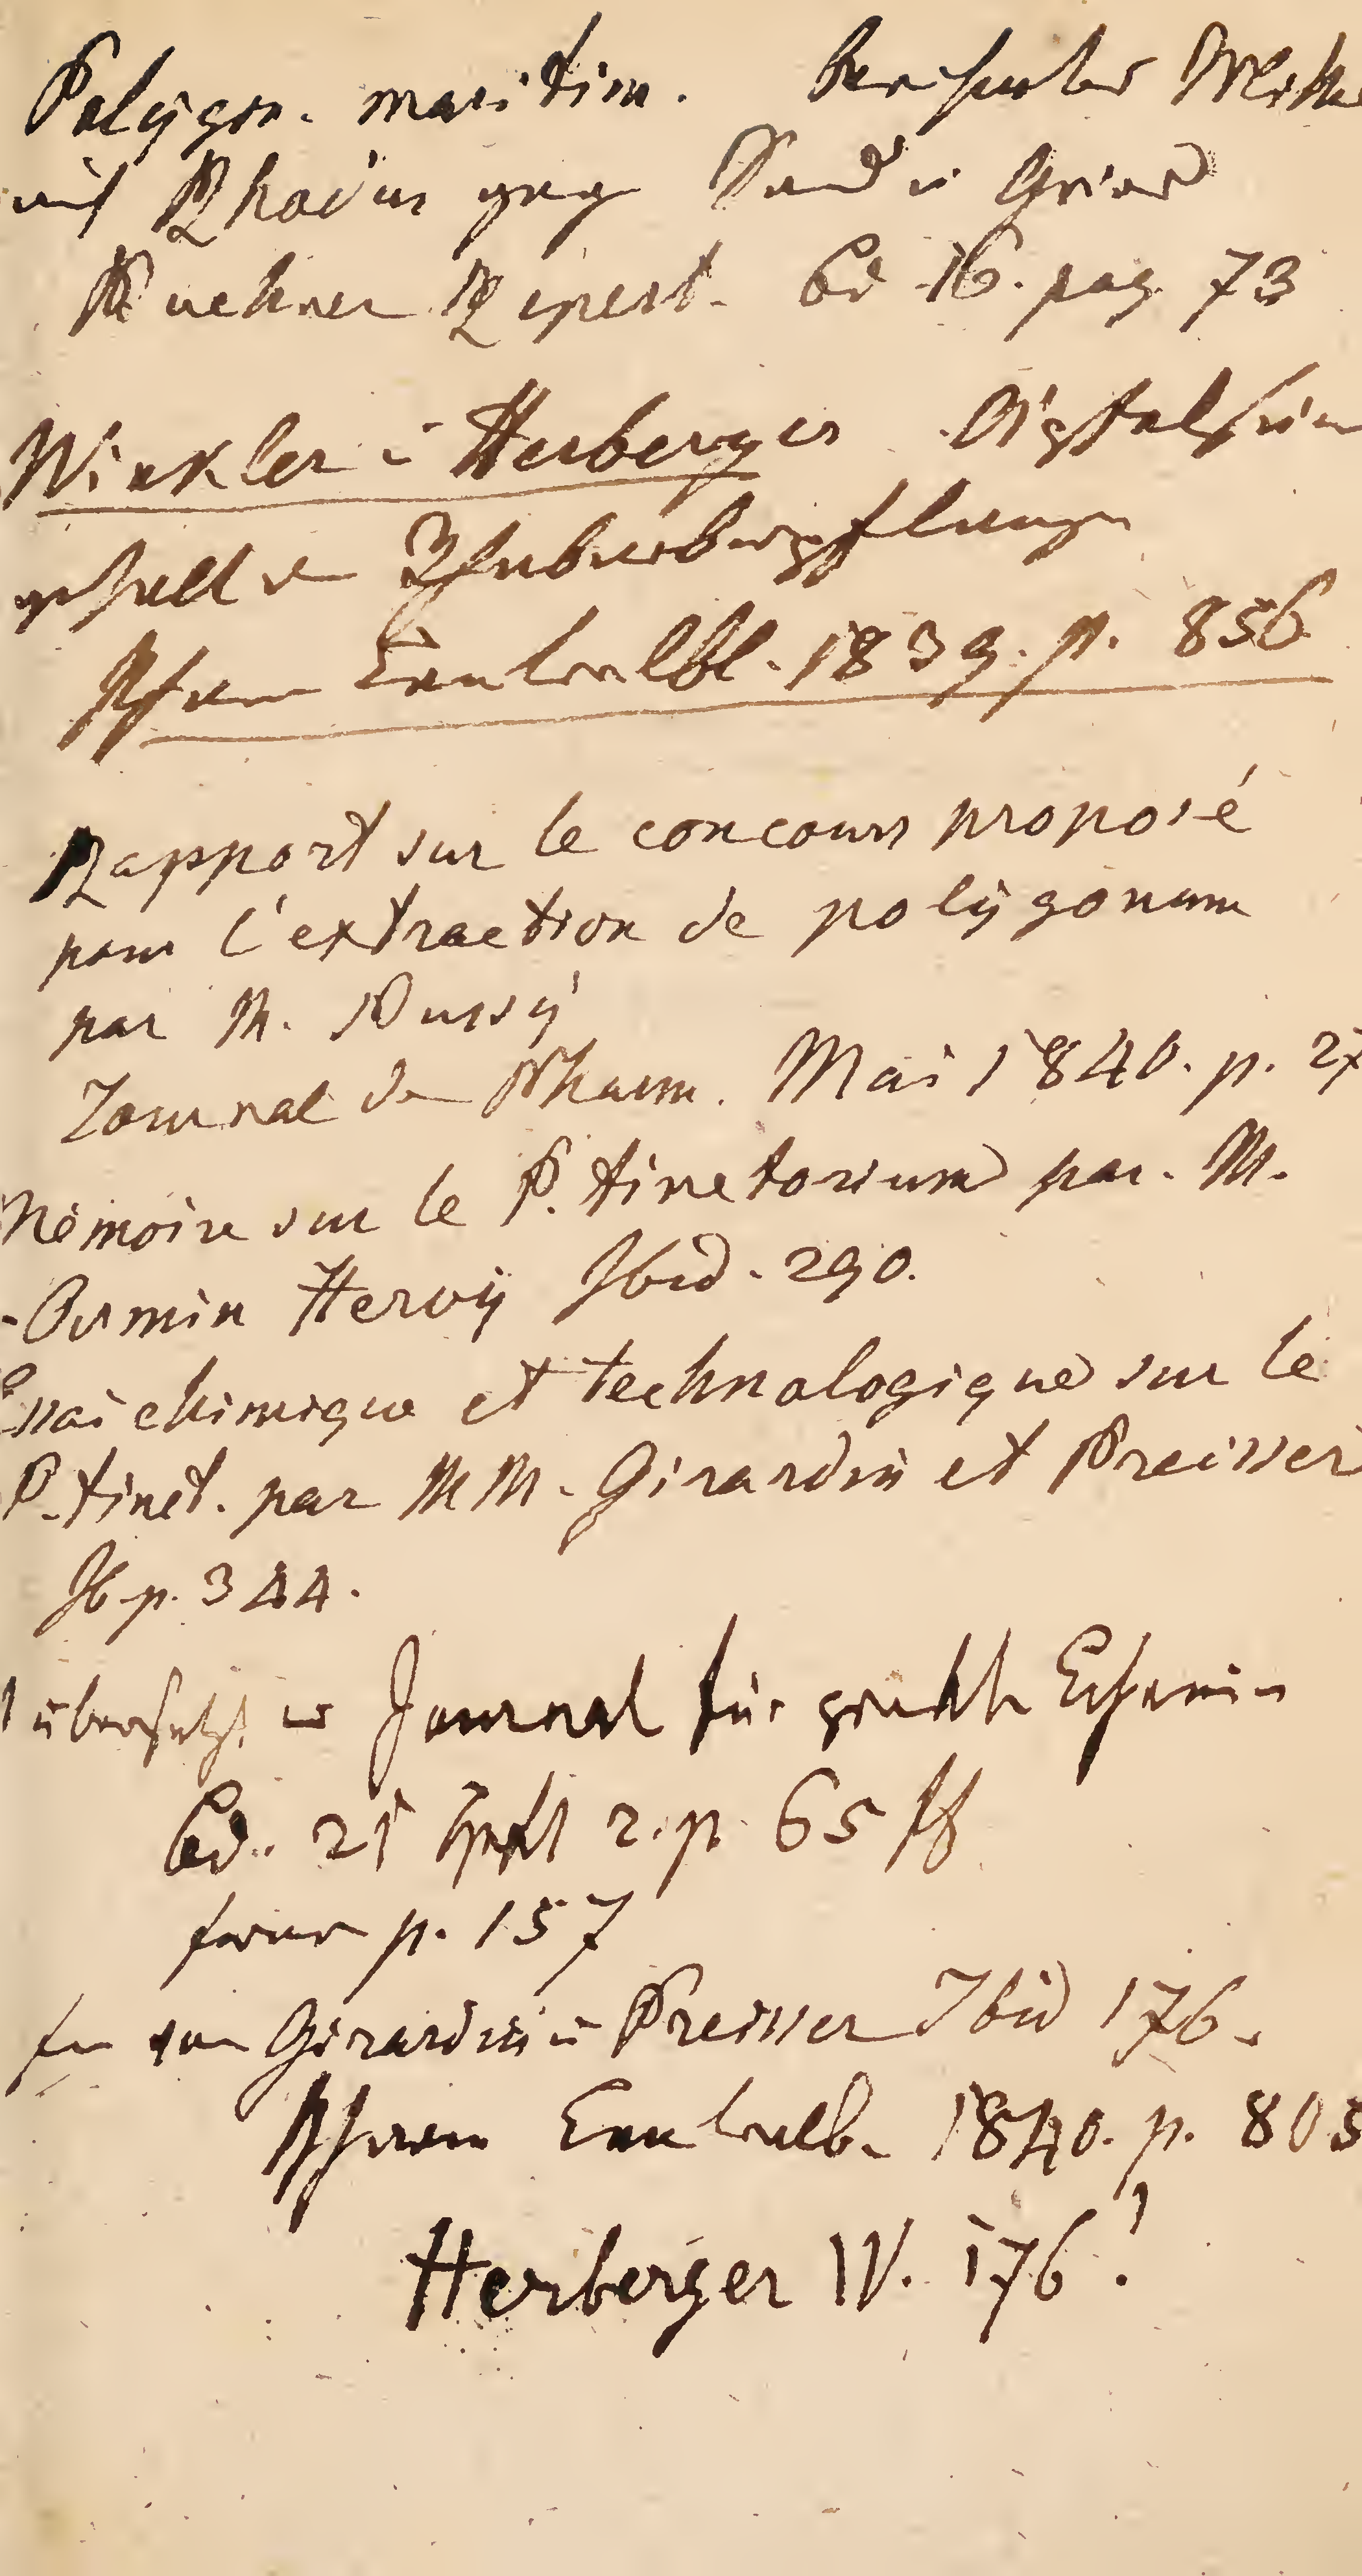 Polygon. maritim. berühmter
auf Rhodus geg Sand u Gries
Buchner Repert. Bd 16. pag 73
Winkler u Herberger
Pharm Centralbl. 1839. p. 856
Rapport sur le concours proposé
pour l'extraction de polygonum
par M. Bussy
Journal de Pharm. Mai 1840. p. 27
Mémoire sur le P. tinctorium par. M.
Osmin Hervy Ibid. 290.
Essai chimique et technologique sur le
P. tinct. par MM. Girardin et Preisser
Ib p. 344.
übersetzt in Journal für prakth Chemie
Bd. 21 Heft 2. p. 65 ff
ferner p. 157
von Girardin u Preisser Ibid 176.
Pharm Centralb. 1840. p. 805
Herberger IV. 176!